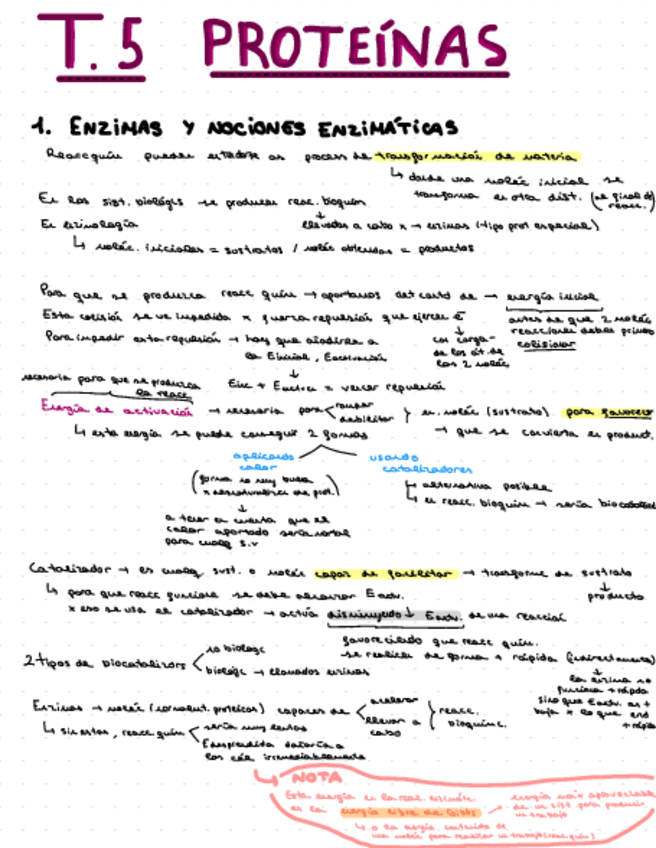 T.5 PROTEÍNAS
1. ENZIMAS Y NOCIONES ENZIMÁTICAS
Reacc quím pueden as proces de transformación de materia
↳ donde una moléc inicial se
transforma en otra dist. (se final de reacc.)
En los sist. biológics se producen reac. bioquím
↓
En enzimología
llevadas a cabo x → enzimas (tipo prot especial)
↳ moléc. iniciales = sustratos / moléc obtenidas = productos
Para que se produzca reacc quím → aportamos det cantd de → energía inicial
Esta colisión se ve impedida x fuerza repulsión que ejerce
antes de que 2 moléc
reaccionen deben primero
colisionar
con carga
de los át. de
las 2 moléc
Para impedir esta repulsión → hay que añadirle a
la Einicial, Eactivación
↓
necesaria para que se produzca
la reacc
Einc + Eactiva = vencer repulsión
Energía de activación → necesaria para romper
debilitar
en. moléc (sustrato) para favorecer
↳ esta energía se puede conseguir 2 formas
→ que se convierta en product.
aplicando
calor
usando
catalizadores
(forma no muy buena
x desnaturaliza de prot.)
↳ alternativa posible
↳ en reacc. bioquím → sería biocatalizad
↓
a tener en cuenta que el
calor aportado sería mortal
para cualq s.v
Catalizador → es cualq sust. o moléc capaz de facilitar → transforme de sustrato
↓
producto
↳ para que reacc funcione se debe alcanzar Eactv.
x eso se usa el catalizador → actúa disminuyendo ↓ Eactv. de una reacción
favoreciendo que reacc quím.
se realice de forma + rápida (indirectamente)
↓
2 tipos de biocatalizors
no biológc
biológc → llamados enzimas
la enzima no
funciona + rápida
sino que Eactv. es +
baja x lo que
+ rápido
Enzimas → moléc (normalmt. proteicas) capaces de
acelerar
llevar a
cabo
reacc.
bioquímc.
↳ sin estas, reacc quím
sería muy lentas
E desprendida dañaría a
las cél irremediablemente
↳ NOTA
Esta energía en la reac.
es la energía libre de Gibbs
energía más aprovechable
de un sist. para producir
un trabajo
↳ o la energía contenido de
una moléc para realizar un trabajo